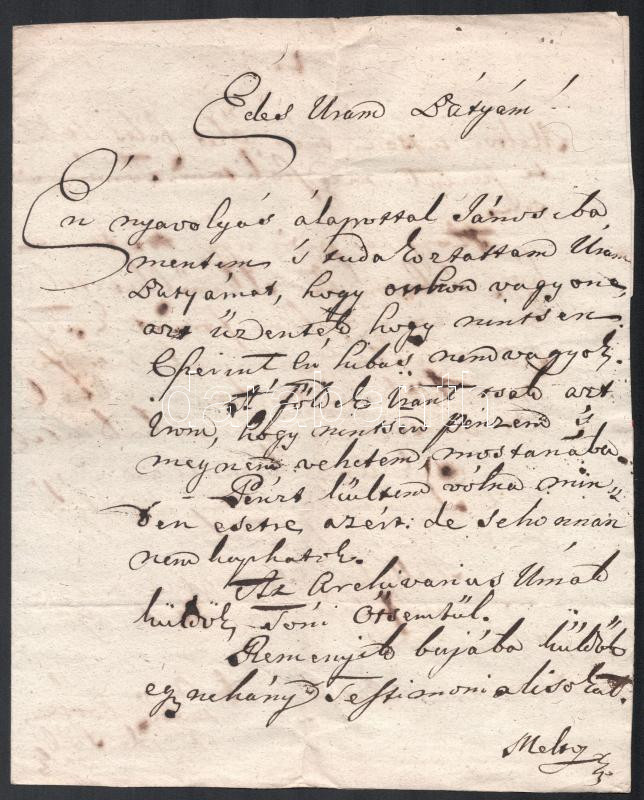 Edes Uram Bátyám!
Én nyavolyás álapottal Jánosiba
mentem, 's tudakoztattam Uram
Bátyámat, hogy otthon vagyone,
azt üzenték hogy nintsen.
Eperint én hibás nem vagyok.
A' Föld Uránt tsak azt
irom, hogy nintsen penzem 's
meg nem vehetem mostanába.
Pénzt kültem vólna min=
den esetre azért: de sehonnan
nem kaphatok.
Az Archivarius Urnak
küldök Tóni Ötsembül.
Remenyik bujába küldök
egynehány Testimonialisokat.